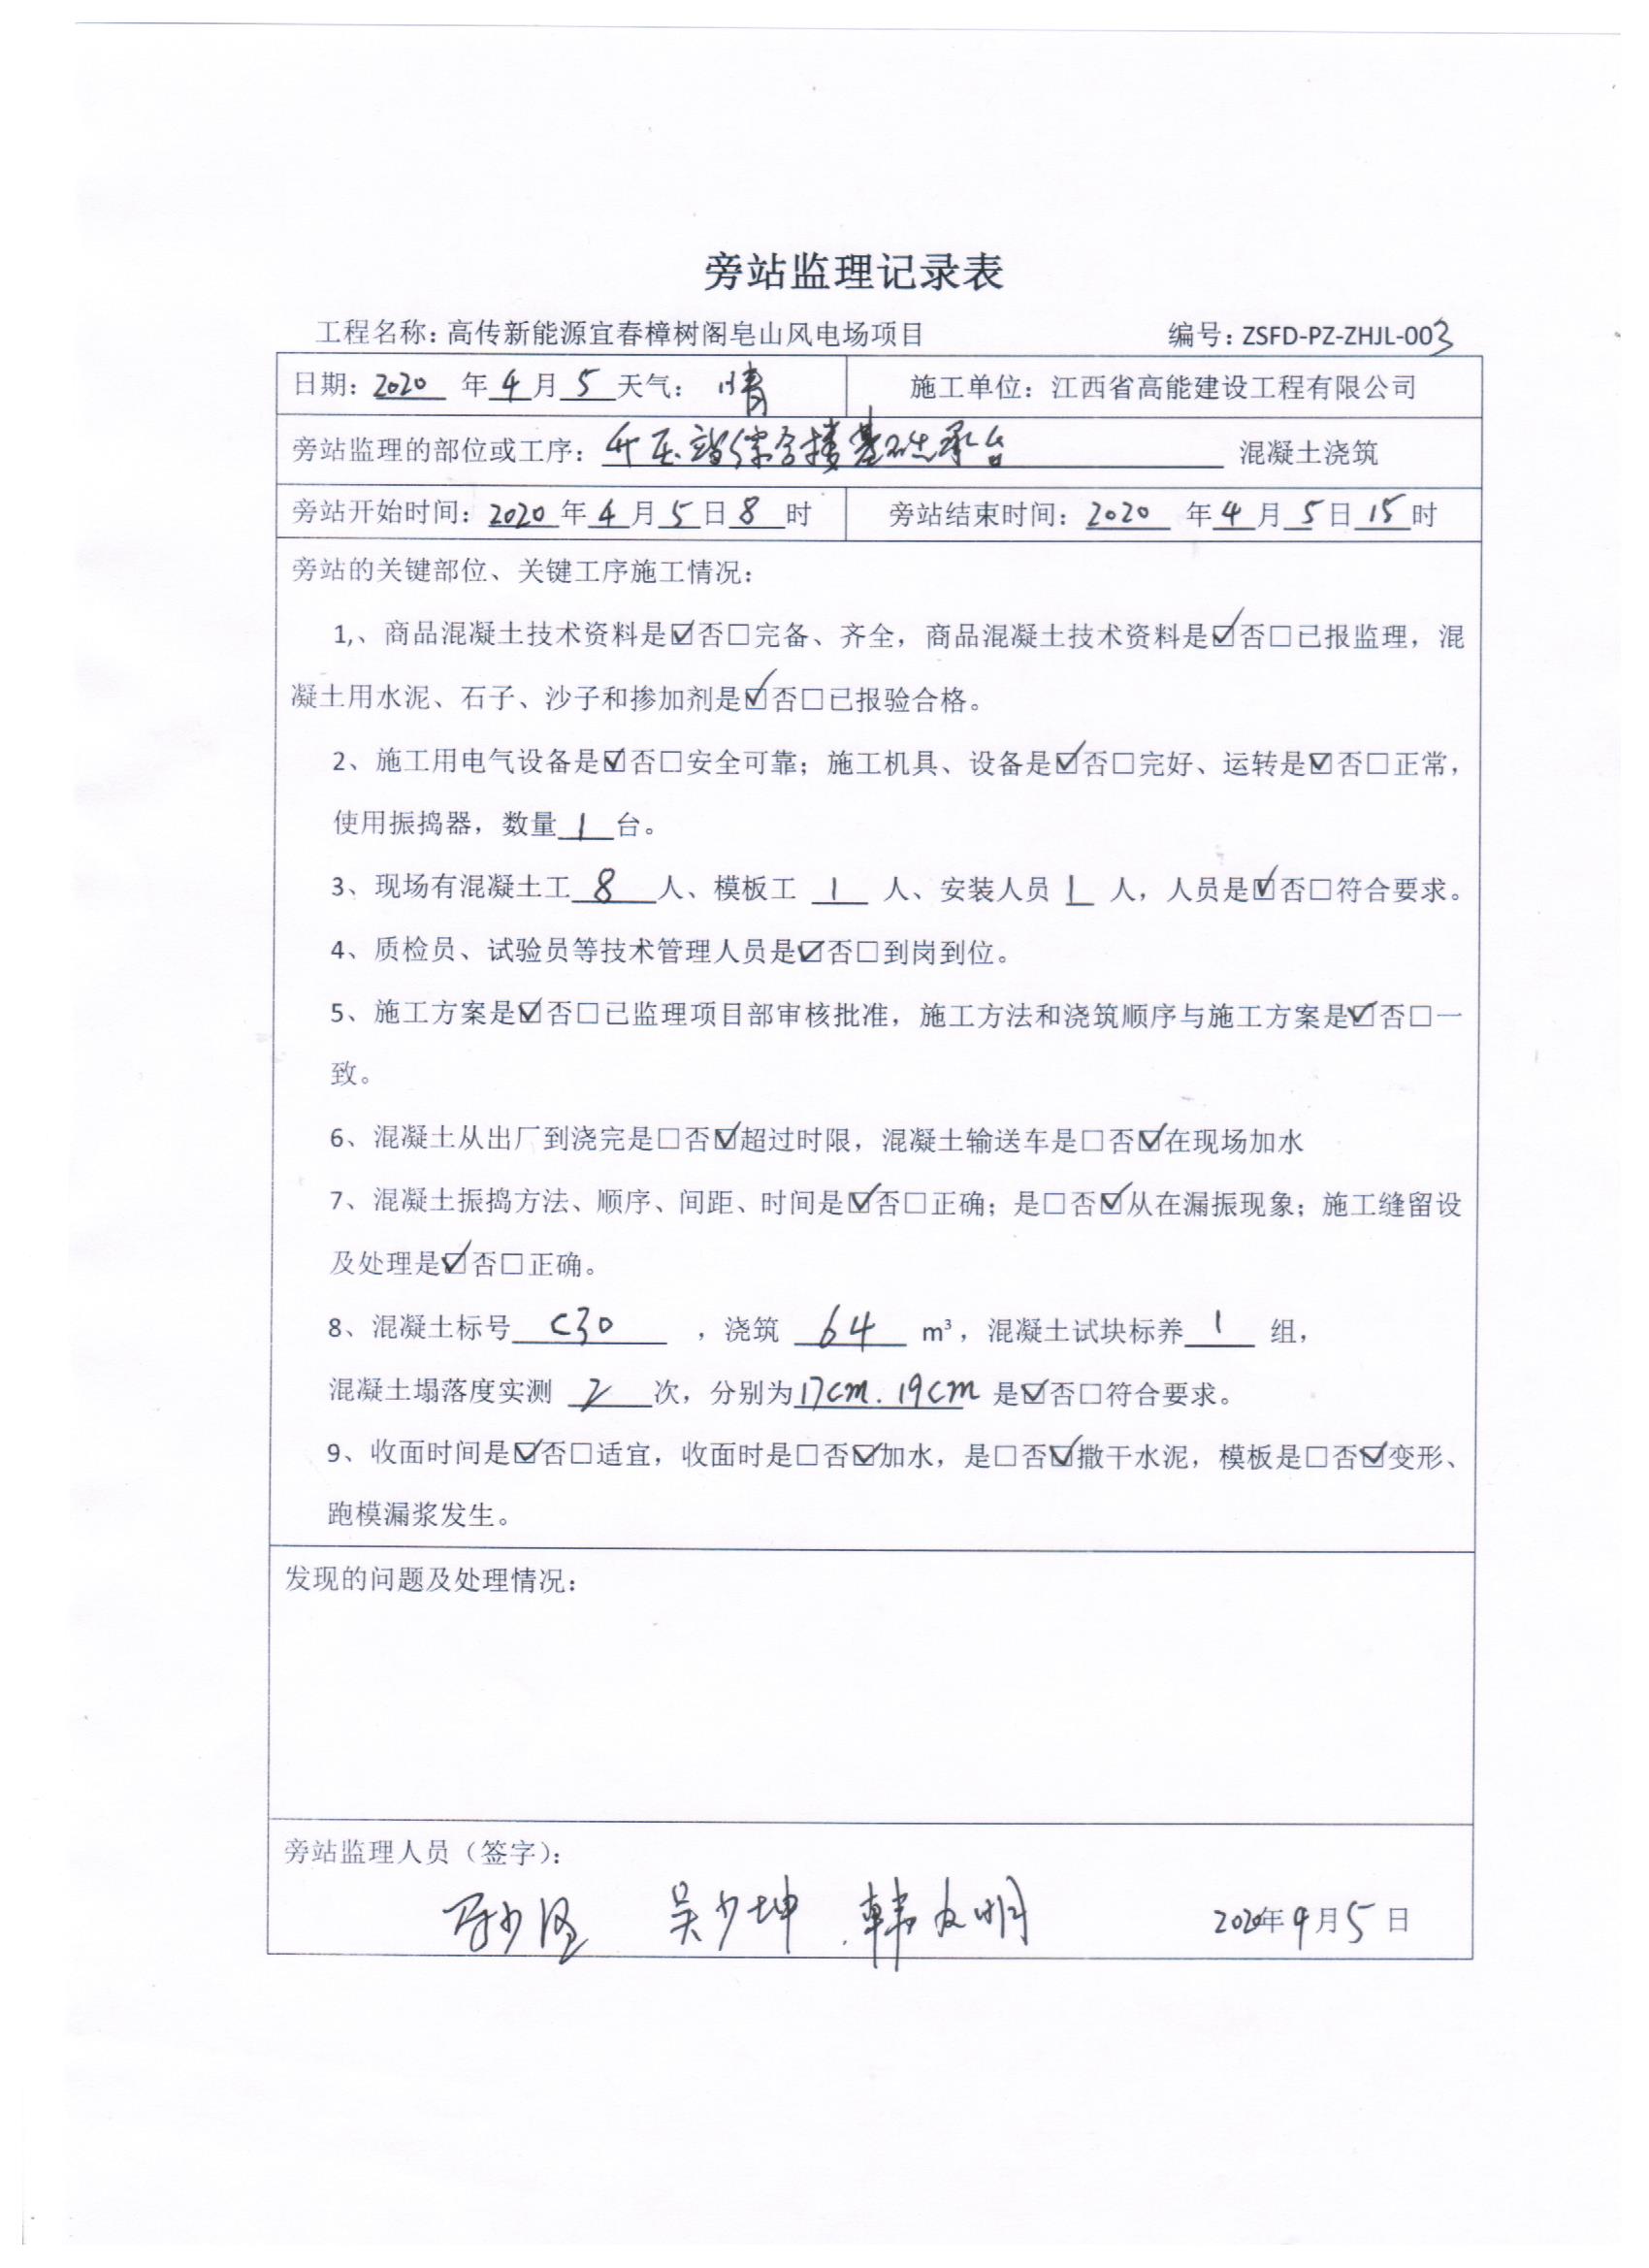 旁站监理记录表
工程名称：高传新能源宜春樟树阁皂山风电场项目 编号：ZSFD-PZ-ZHJL-003
日期：2020 年 4 月 5 天气： 晴 施工单位：江西省高能建设工程有限公司
旁站监理的部位或工序：升压站综合楼基础承台 混凝土浇筑
旁站开始时间：2020 年 4 月 5 日 8 时 旁站结束时间：2020 年 4 月 5 日 15 时
旁站的关键部位、关键工序施工情况：
1,、商品混凝土技术资料是☑否□完备、齐全，商品混凝土技术资料是☑否□已报监理，混
凝土用水泥、石子、沙子和掺加剂是☑否□已报验合格。
2、施工用电气设备是☑否□安全可靠；施工机具、设备是☑否□完好、运转是☑否□正常，
使用振捣器，数量 1 台。
3、现场有混凝土工 8 人、模板工 1 人、安装人员 1 人，人员是☑否□符合要求。
4、质检员、试验员等技术管理人员是☑否□到岗到位。
5、施工方案是☑否□已监理项目部审核批准，施工方法和浇筑顺序与施工方案是☑否□一
致。
6、混凝土从出厂到浇完是□否☑超过时限，混凝土输送车是□否☑在现场加水
7、混凝土振捣方法、顺序、间距、时间是☑否□正确；是□否☑从在漏振现象；施工缝留设
及处理是☑否□正确。
8、混凝土标号 C30 ，浇筑 64 m³，混凝土试块标养 1 组，
混凝土塌落度实测 2 次，分别为17cm.19cm 是☑否□符合要求。
9、收面时间是☑否□适宜，收面时是□否☑加水，是□否☑撒干水泥，模板是□否☑变形、
跑模漏浆发生。
发现的问题及处理情况：
旁站监理人员（签字）：
吴少坤 韩友明 2020年4月5日